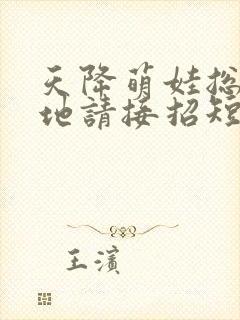 天降萌娃总
地請接招短
王濱